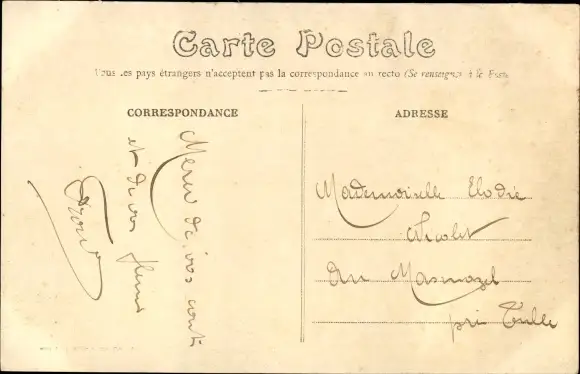 Carte Postale
Tous les pays étrangers n'acceptent pas la correspondance au recto (Se renseigner à la Poste)
CORRESPONDANCE
ADRESSE
Merci de vos
et de vos fleurs
Mademoiselle Elodie
Nicolet
Au Masmazel
près Tulle